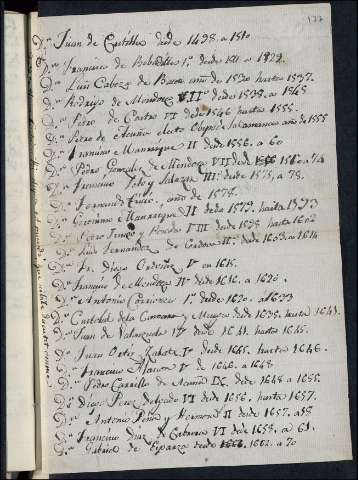 177
Dn. Juan de Castilla desde 1498. a 1510
Dn. Francisco de Bobadilla 1º. desde 1511 a 1529.
Dn. Luis Cabeza de Baca año de 1530 hasta 1537.
Dn. Rodrigo de Mendoza VII desde 1538. a 1545
Dn. Pedro de Castro VI desde 1546 hasta 1555.
Dn. Pedro de Acuña electo Obispo de Salamanca año de 1555
Dn. Francisco Manrrique II desde 1556. a 60
Dn. Pedro Gonzalez de Mendoza VII desde 1560 a 74
Dn. Francisco Soto y Salazar III. desde 1575, a 78.
Dn. Fernando año de 1578.
Dn. Geronimo Manrrique II desde 1579. hasta 1593
Dn. Pedro Junco y Posada VIII desde 1598 hasta 1602
Dn. Luis Fernandez de Cordova II. desde 1603. a 1614
Dn. Fr. Diego Ordoñez V en 1615.
Dn. Francisco de Mendoza IV desde 1616. a 1620.
Dn. Antonio Corrionero 1º. desde 1620. a 1633
Dn. Cristobal de la Camara y Murga desde 1635. hasta 1641.
Dn. Juan de Valenzuela Vº desde 1641. hasta 1645.
Dn. Juan Ortiz Zarate Iº desde 1645. hasta 1646.
Dn. Francisco Alarcon V de 1646. a 1648
Dn. Pedro Carrillo de Acuña IX. desde 1648 a 1655.
Dn. Diego Perez Delgado VI desde 1656. hasta 1657.
Dn. Antonio Peña y Hermosa II desde 1657. a 58
Dn. Francisco Diaz de Cabrera VI desde 1658. a 61.
Dn. Gabriel de Esparza desde 1662. a 70